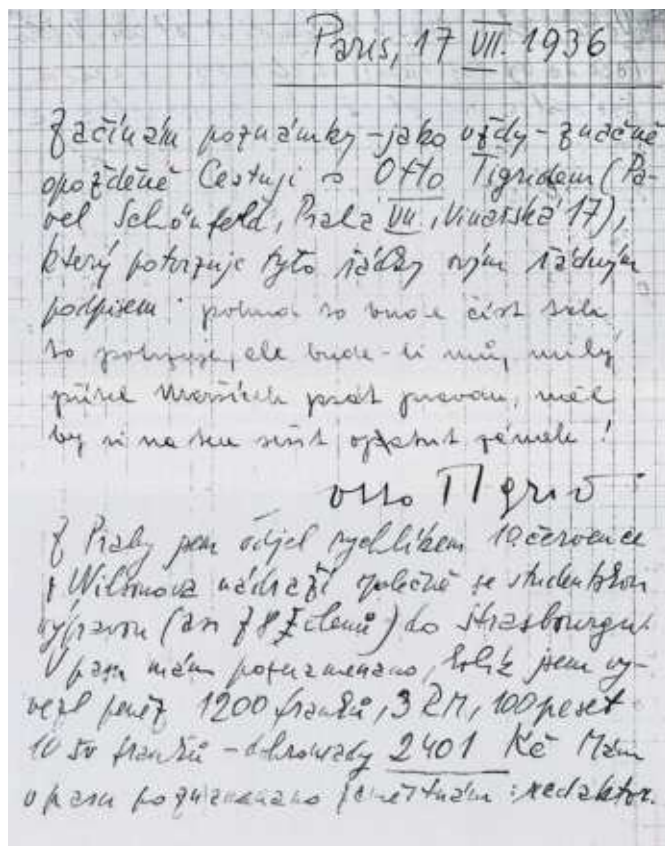 Paris, 17 VII. 1936
Začínám poznámky - jako vždy - značně
opožděně Cestuji s Otto Tigridem (Pa-
vel Schönfeld, Praha VII, Vinařská 17),
který potvrzuje tyto řádky svým řádným
podpisem: pokud to bude číst
to potvrzuje, ale bude-li můj milý
psát pravdu, měl
by si na ten sešit opatřit zámek!
Otto Tigrid
Z Prahy jsem odjel rychlíkem 10. července
z Wilsonova nádraží společně se studentskou
výpravou (asi 78 členů) do Strasbourgu.
V pasu mám poznamenáno, kolik jsem vy-
vezl peněz 1200 franků, 3 RM, 100 peset
10 šv franků - dohromady 2401 Kč Mám
v pasu poznamenáno zaměstnání: redaktor.